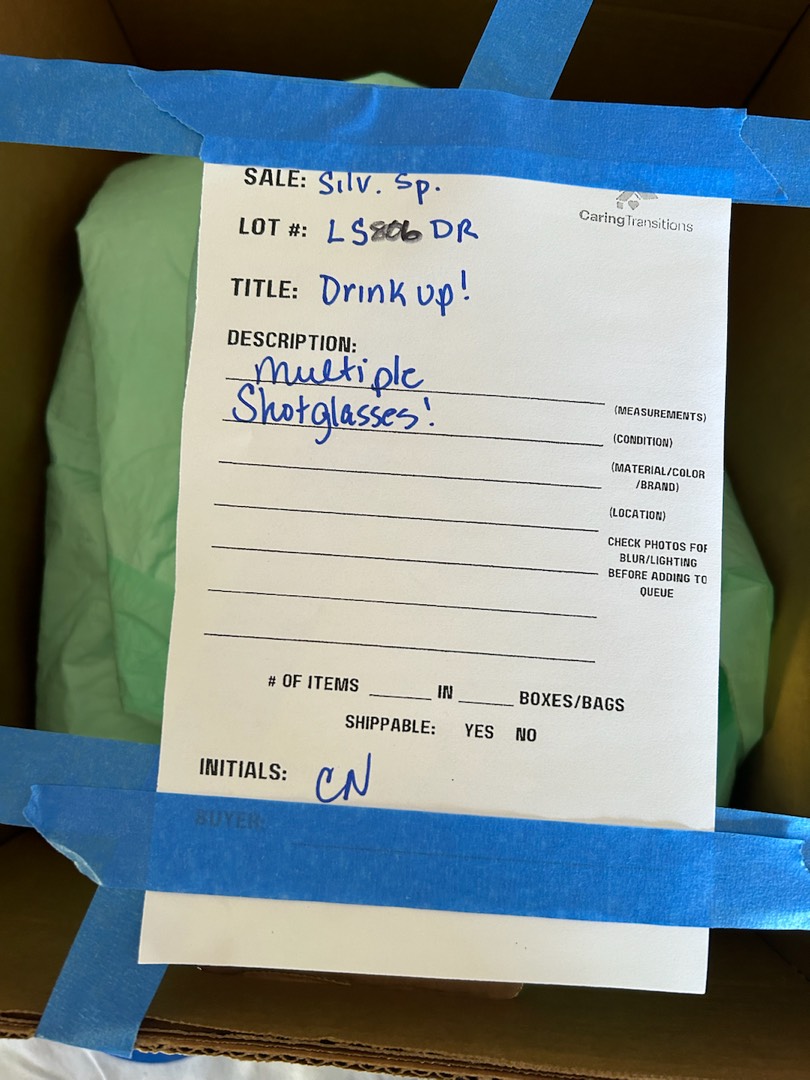 SALE: Silv. Sp.
CaringTransitions
LOT #: LS806 DR
TITLE: Drink up!
DESCRIPTION:
Multiple
Shotglasses!
(MEASUREMENTS)
(CONDITION)
(MATERIAL/COLOR
/BRAND)
(LOCATION)
CHECK PHOTOS FOR
BLUR/LIGHTING
BEFORE ADDING TO
QUEUE
# OF ITEMS ______ IN ______ BOXES/BAGS
SHIPPABLE: YES NO
INITIALS: CN
BUYER: